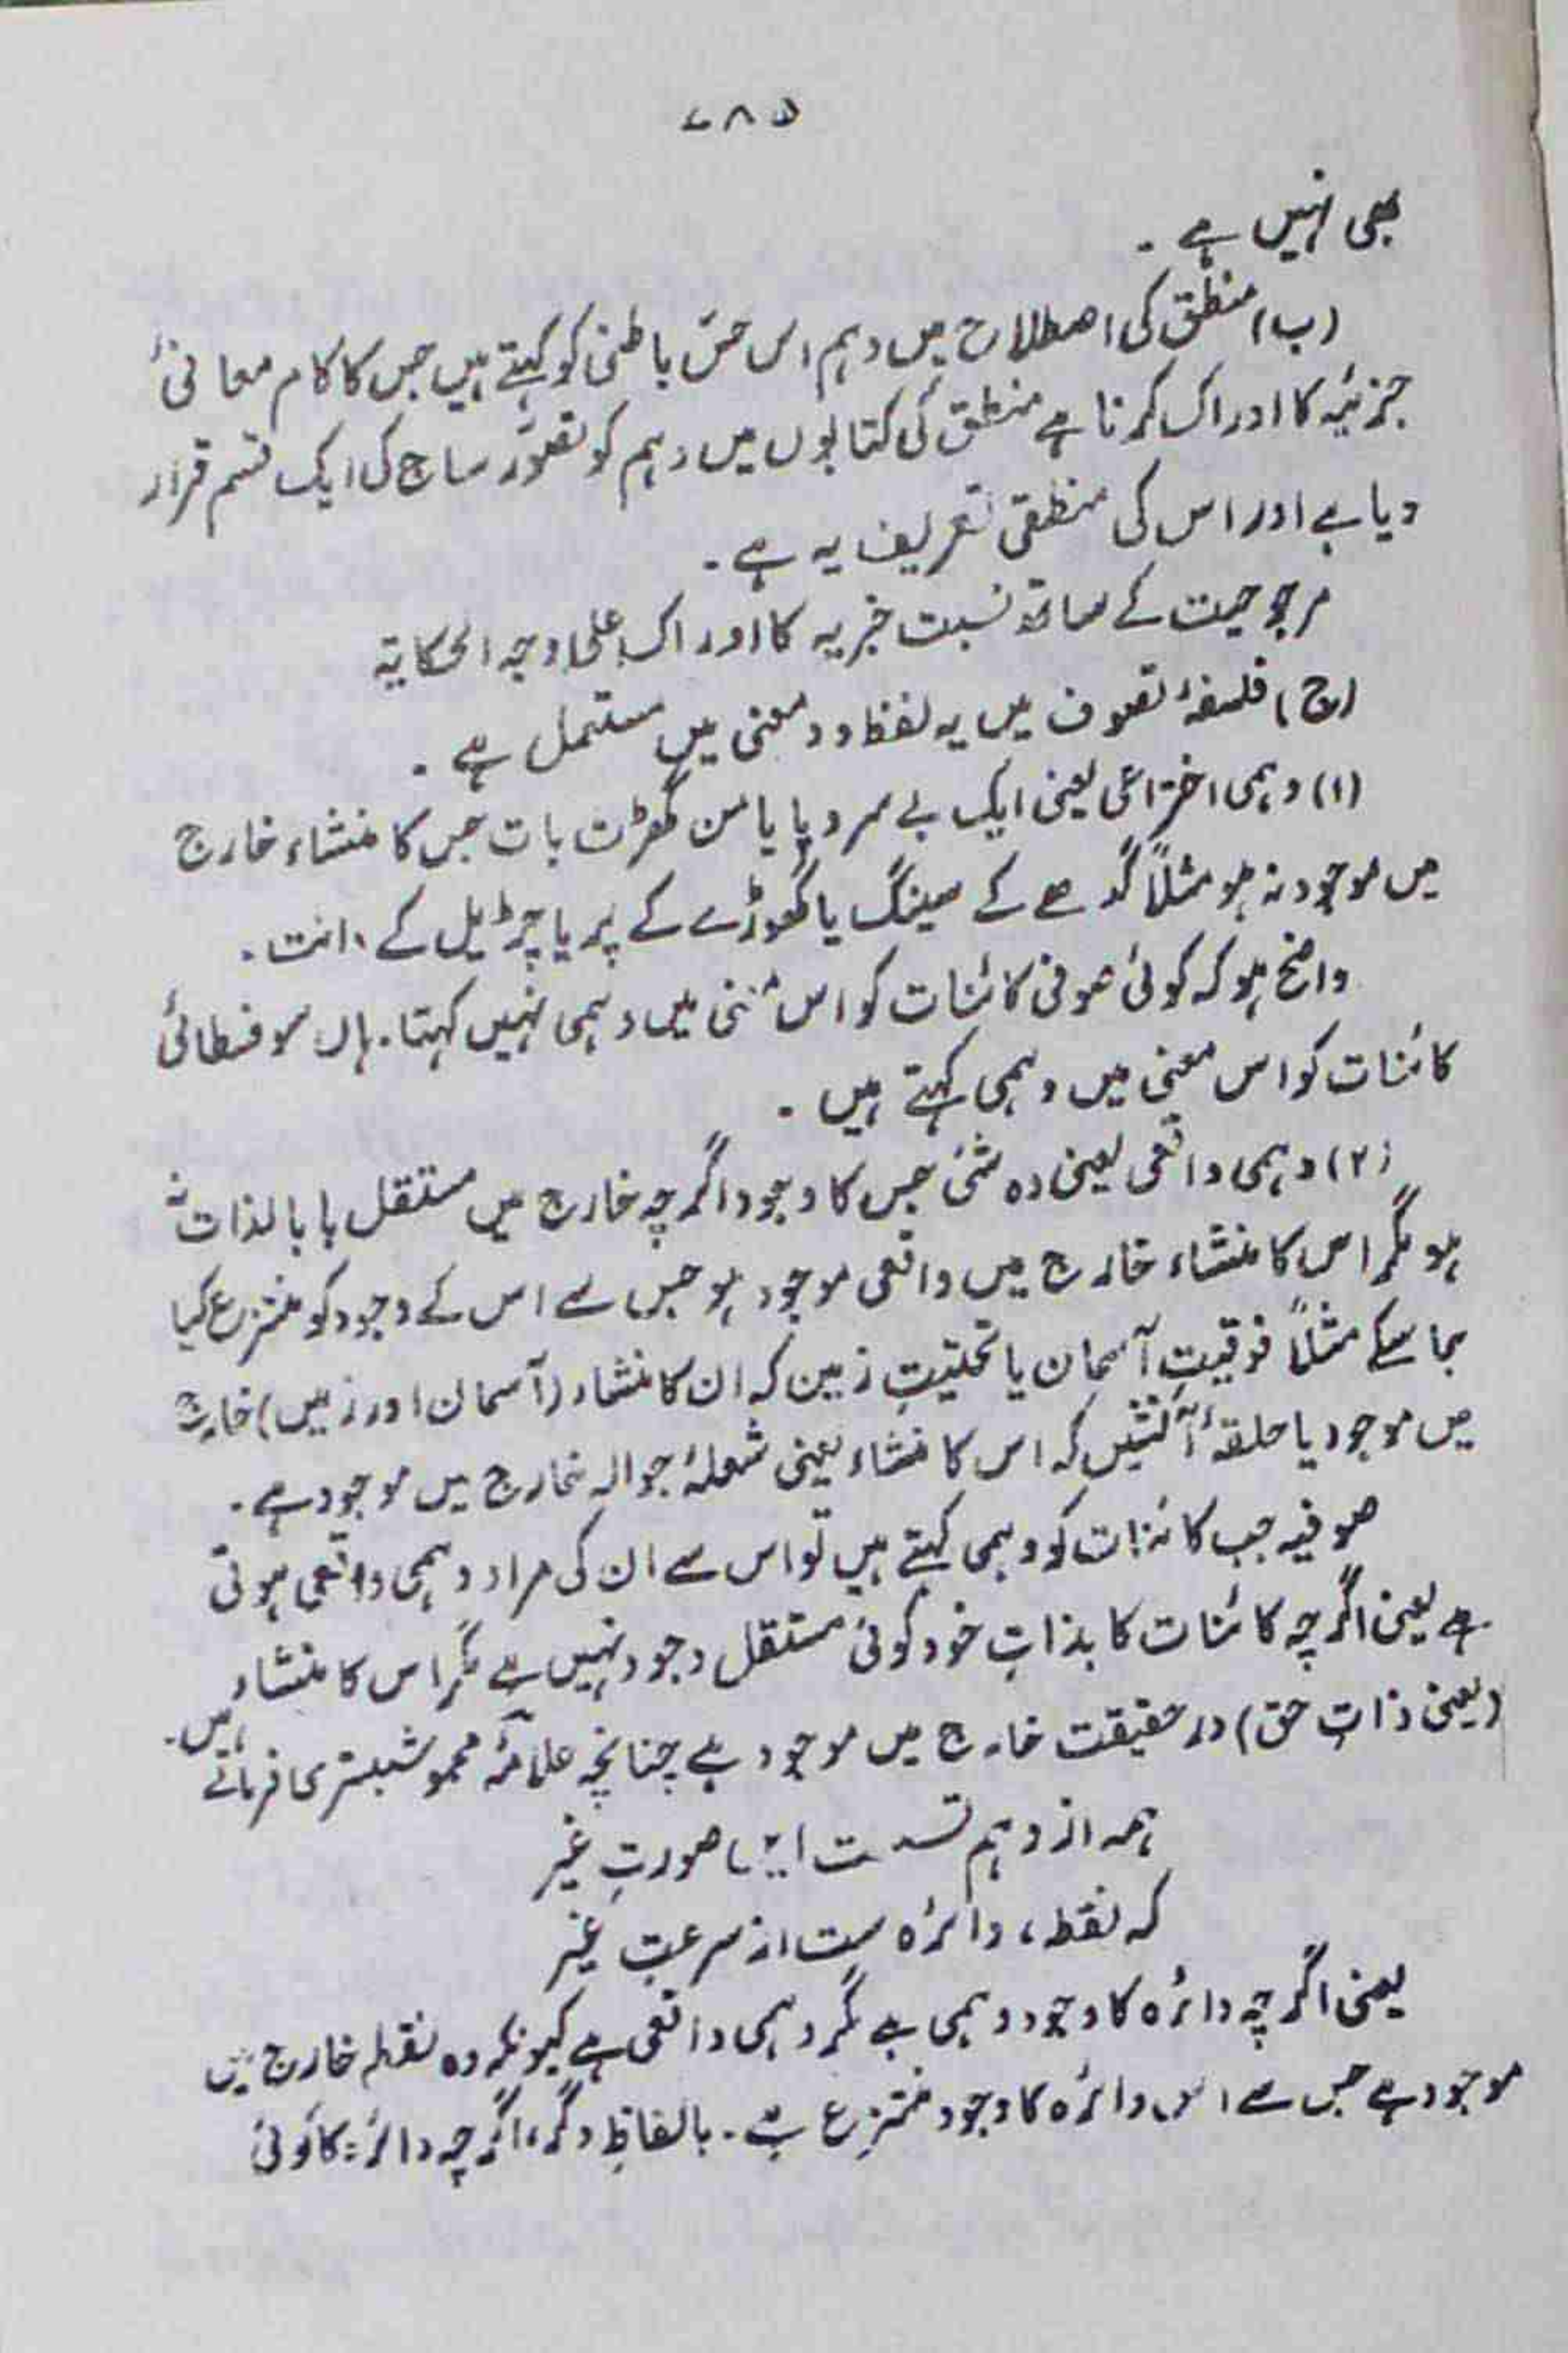 ۷۸۵
بھی نہیں ہے ۔
(ب) منطق کی اصطلاح میں وہم اس حسّ باطنی کو کہتے ہیں جس کا کام معانیٔ
جزئیہ کا ادراک کرنا ہے منطق کی کتابوں میں وہم کو تصوّر ساذج کی ایک قسم قرار
دیا ہے اور اس کی منطقی تعریف یہ ہے ۔
مرجوحیت کے ساتھ نسبت خبریہ کا ادراک علیٰ وجہ الحکایتہ
(ج) فلسفۂ تصوف میں یہ لفظ دو معنی میں مستعمل ہے ۔
(۱) وہمی اختراعی یعنی ایک بے سر و پا یا من گھڑت بات جس کا منشاء خارج
میں موجود نہ ہو مثلاً گدھے کے سینگ یا گھوڑے کے پر یا چڑیل کے دانت ۔
واضح ہو کہ کوئی صوفی کائنات کو اس معنی میں وہمی نہیں کہتا ۔ ہاں سوفسطائی
کائنات کو اس معنی میں وہمی کہتے ہیں ۔
(۲) وہمی واقعی یعنی وہ شئی جس کا وجود اگرچہ خارج میں مستقل یا بالذات نہ
ہو مگر اس کا منشاء خارج میں واقعی موجود ہو جس سے اس کے وجود کو منتزع کیا
جا سکے مثلاً فوقیتِ آسمان یا تحتیتِ زمین کہ ان کا منشاء (آسمان اور زمیں) خارج
میں موجود یا حلقۂ آتشیں کہ اس کا منشاء یعنی شعلۂ جوالہ خارج میں موجود ہے ۔
صوفیہ جب کائنات کو وہمی کہتے ہیں تو اس سے ان کی مراد وہمی واقعی ہوتی
ہے یعنی اگرچہ کائنات کا بذاتِ خود کوئی مستقل وجود نہیں ہے مگر اس کا منشاء
(یعنی ذاتِ حق) در حقیقت خارج میں موجود ہے چنانچہ علامّہ محمو شبستری فرماتے ہیں ۔
ہمہ از وہم تست ایں صورتِ غیر
کہ نقطہ، دائرہ ست از سرعتِ غیر
یعنی اگرچہ دائرہ کا وجود وہمی ہے مگر وہمی واقعی ہے کیونکہ وہ نقطہ خارج میں
موجود ہے جس سے اس دائرہ کا وجود منتزع ہے ۔ بالفاظِ دگر، اگرچہ دائرہ کا کوئی